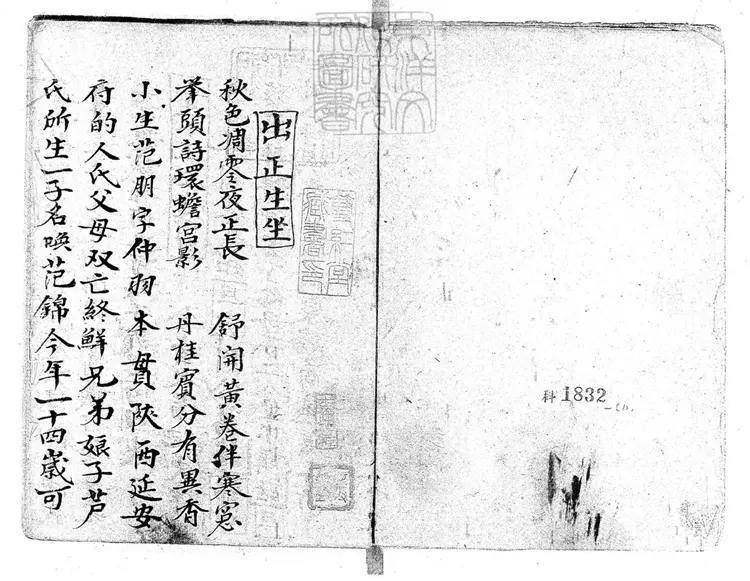 科1832
出正生坐
秋色凋零夜正長 舒開黃卷伴寒窓
举頭詩環蟾宫影 丹桂賓分有異香
小生范朋字仲羽 本貫陝西延安
府的人氏父母双亡終鮮兄弟娘子芦
氏所生一子名唤范錦今年一十四歳可